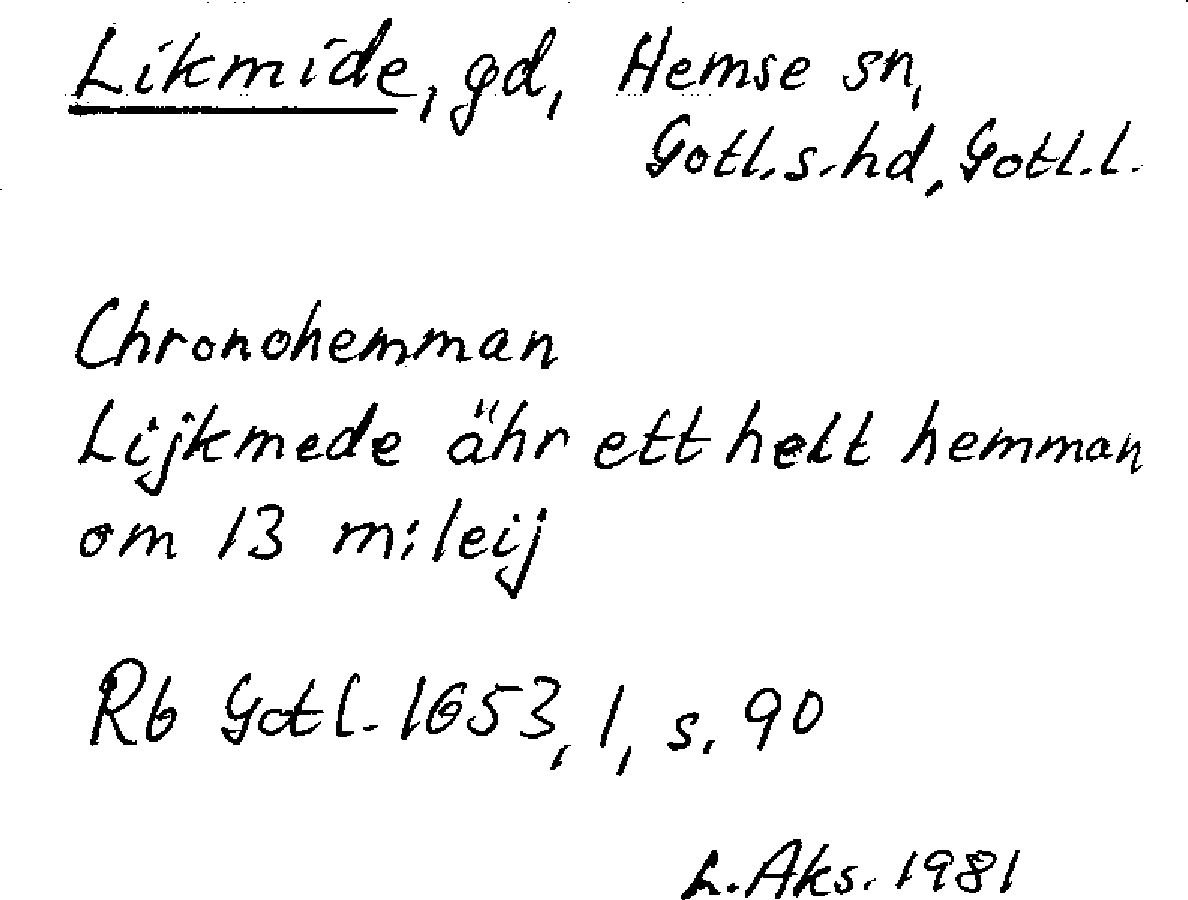 Likmide, gd, Hemse sn,
Gotl.s.hd, Gotl.l.
Chronohemman
Lijkmede ähr ett helt hemman
om 13 m:leij
Rb Gotl. 1653, 1, s. 90
L. Aks. 1981